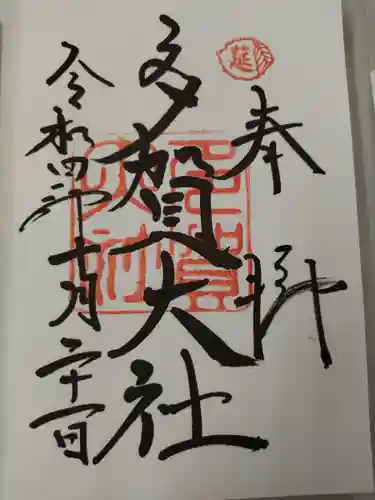 奉拝
延
多賀大社
多賀大社
令和四年十月二十一日